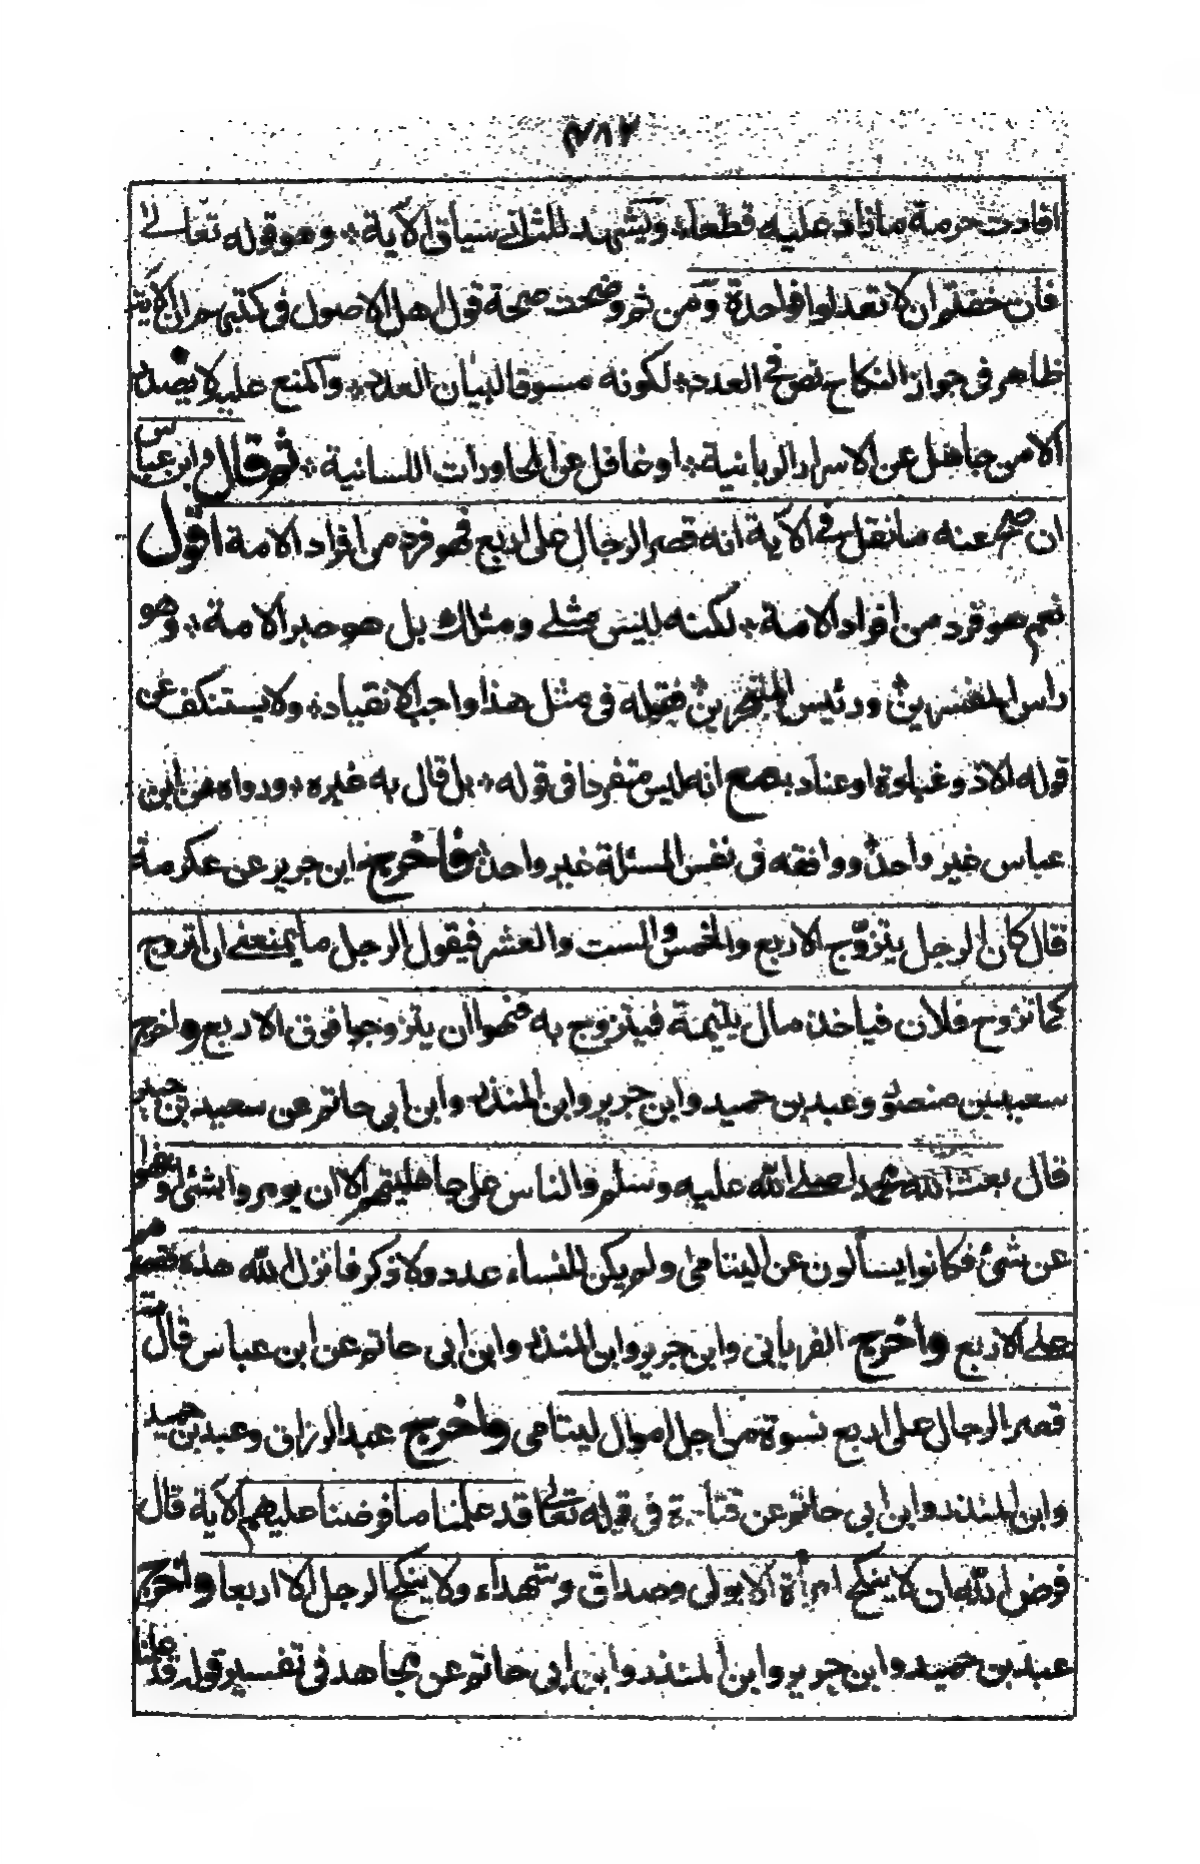 ٢٨٢
افادت حرمة مازاد عليه قطعا؛ ويشهد للثاني سياق الآية؛ وهو قوله تعالى
فان خفتم ان لا تعدلوا فواحدة ومن ثم وضحت صحة قول اهل الاصول في كتبهم ان الآية
ظاهر في جواز النكاح نص في العدد؛ لكونه مسوقا لبيان العدد؛ والمنع عليه لا يصدر
الا من جاهل عن الاسرار الربانية؛ او غافل عن المحاورات اللسانية؛ ثم قال وابن عباس
ان صح عنه ما نقل في الآية انه قصر الرجال على اربع فهو فرد من افراد الامة اقول
نعم هو فرد من افراد الامة؛ لكنه ليس مثلي ومثلك بل هو حبر الامة؛ وهو
راس المفسرين ورئيس المتبحرين فقوله في مثل هذا واجب الانقياد؛ ولا يستنكف عن
قوله الا ذو غباوة او عناد مع انه ليس متفردا في قوله؛ بل قال به غيره؛ ورواه عن ابن
عباس غير واحد ووافقه في نفس المسئلة غير واحد فاخرج ابن جرير عن عكرمة
قال كان الرجل يتزوج الاربع والخمس والست والعشر فيقول الرجل ما يمنعني ان اتزوج
كما تزوج فلان فياخذ مال يتيمة فيتزوج به فنهوا ان يتزوجوا فوق الاربع واخرج
سعيد بن منصور وعبد بن حميد وابن جرير وابن المنذر وابن ابي حاتم عن سعيد بن جبير
قال بعث الله محمدا صلى الله عليه وسلم والناس على جاهليتهم الا ان يومروا بشئ او ينهوا
عن شئ فكانوا يسألون عن اليتامى ولم يكن للنساء عدد ولا ذكر فانزل الله هذه فقصرهم
على الاربع واخرج الفريابي وابن جرير وابن المنذر وابن ابي حاتم عن ابن عباس قال
قصر الرجال على اربع نسوة من اجل اموال ليتامى واخرج عبد الرزاق وعبد بن حميد
وابن المنذر وابن ابي حاتم عن قتادة في قوله تعالى قد علمنا ما فرضنا عليهم الآية قال
فرض الله ان لا ينكح امرأة الا بولي وصداق وشهداء ولا ينكح الرجل الا اربعا واخرج
عبد بن حميد وابن جرير وابن المنذر وابن ابي حاتم عن مجاهد في تفسير قوله قد علمنا